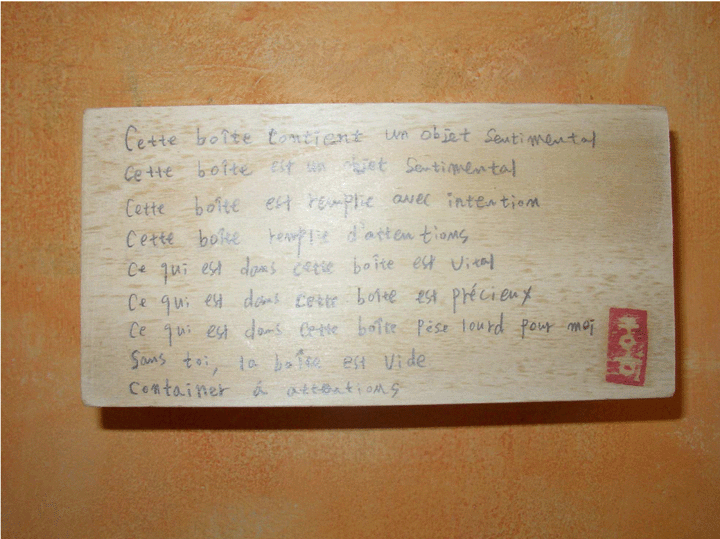 Cette boîte contient un objet sentimental
Cette boîte est un objet sentimental
Cette boîte est remplie avec intention
Cette boîte remplie d'attentions
Ce qui est dans cette boîte est vital
Ce qui est dans cette boîte est précieux
Ce qui est dans cette boîte pèse lourd pour moi
Sans toi, la boîte est vide
Container à attentions